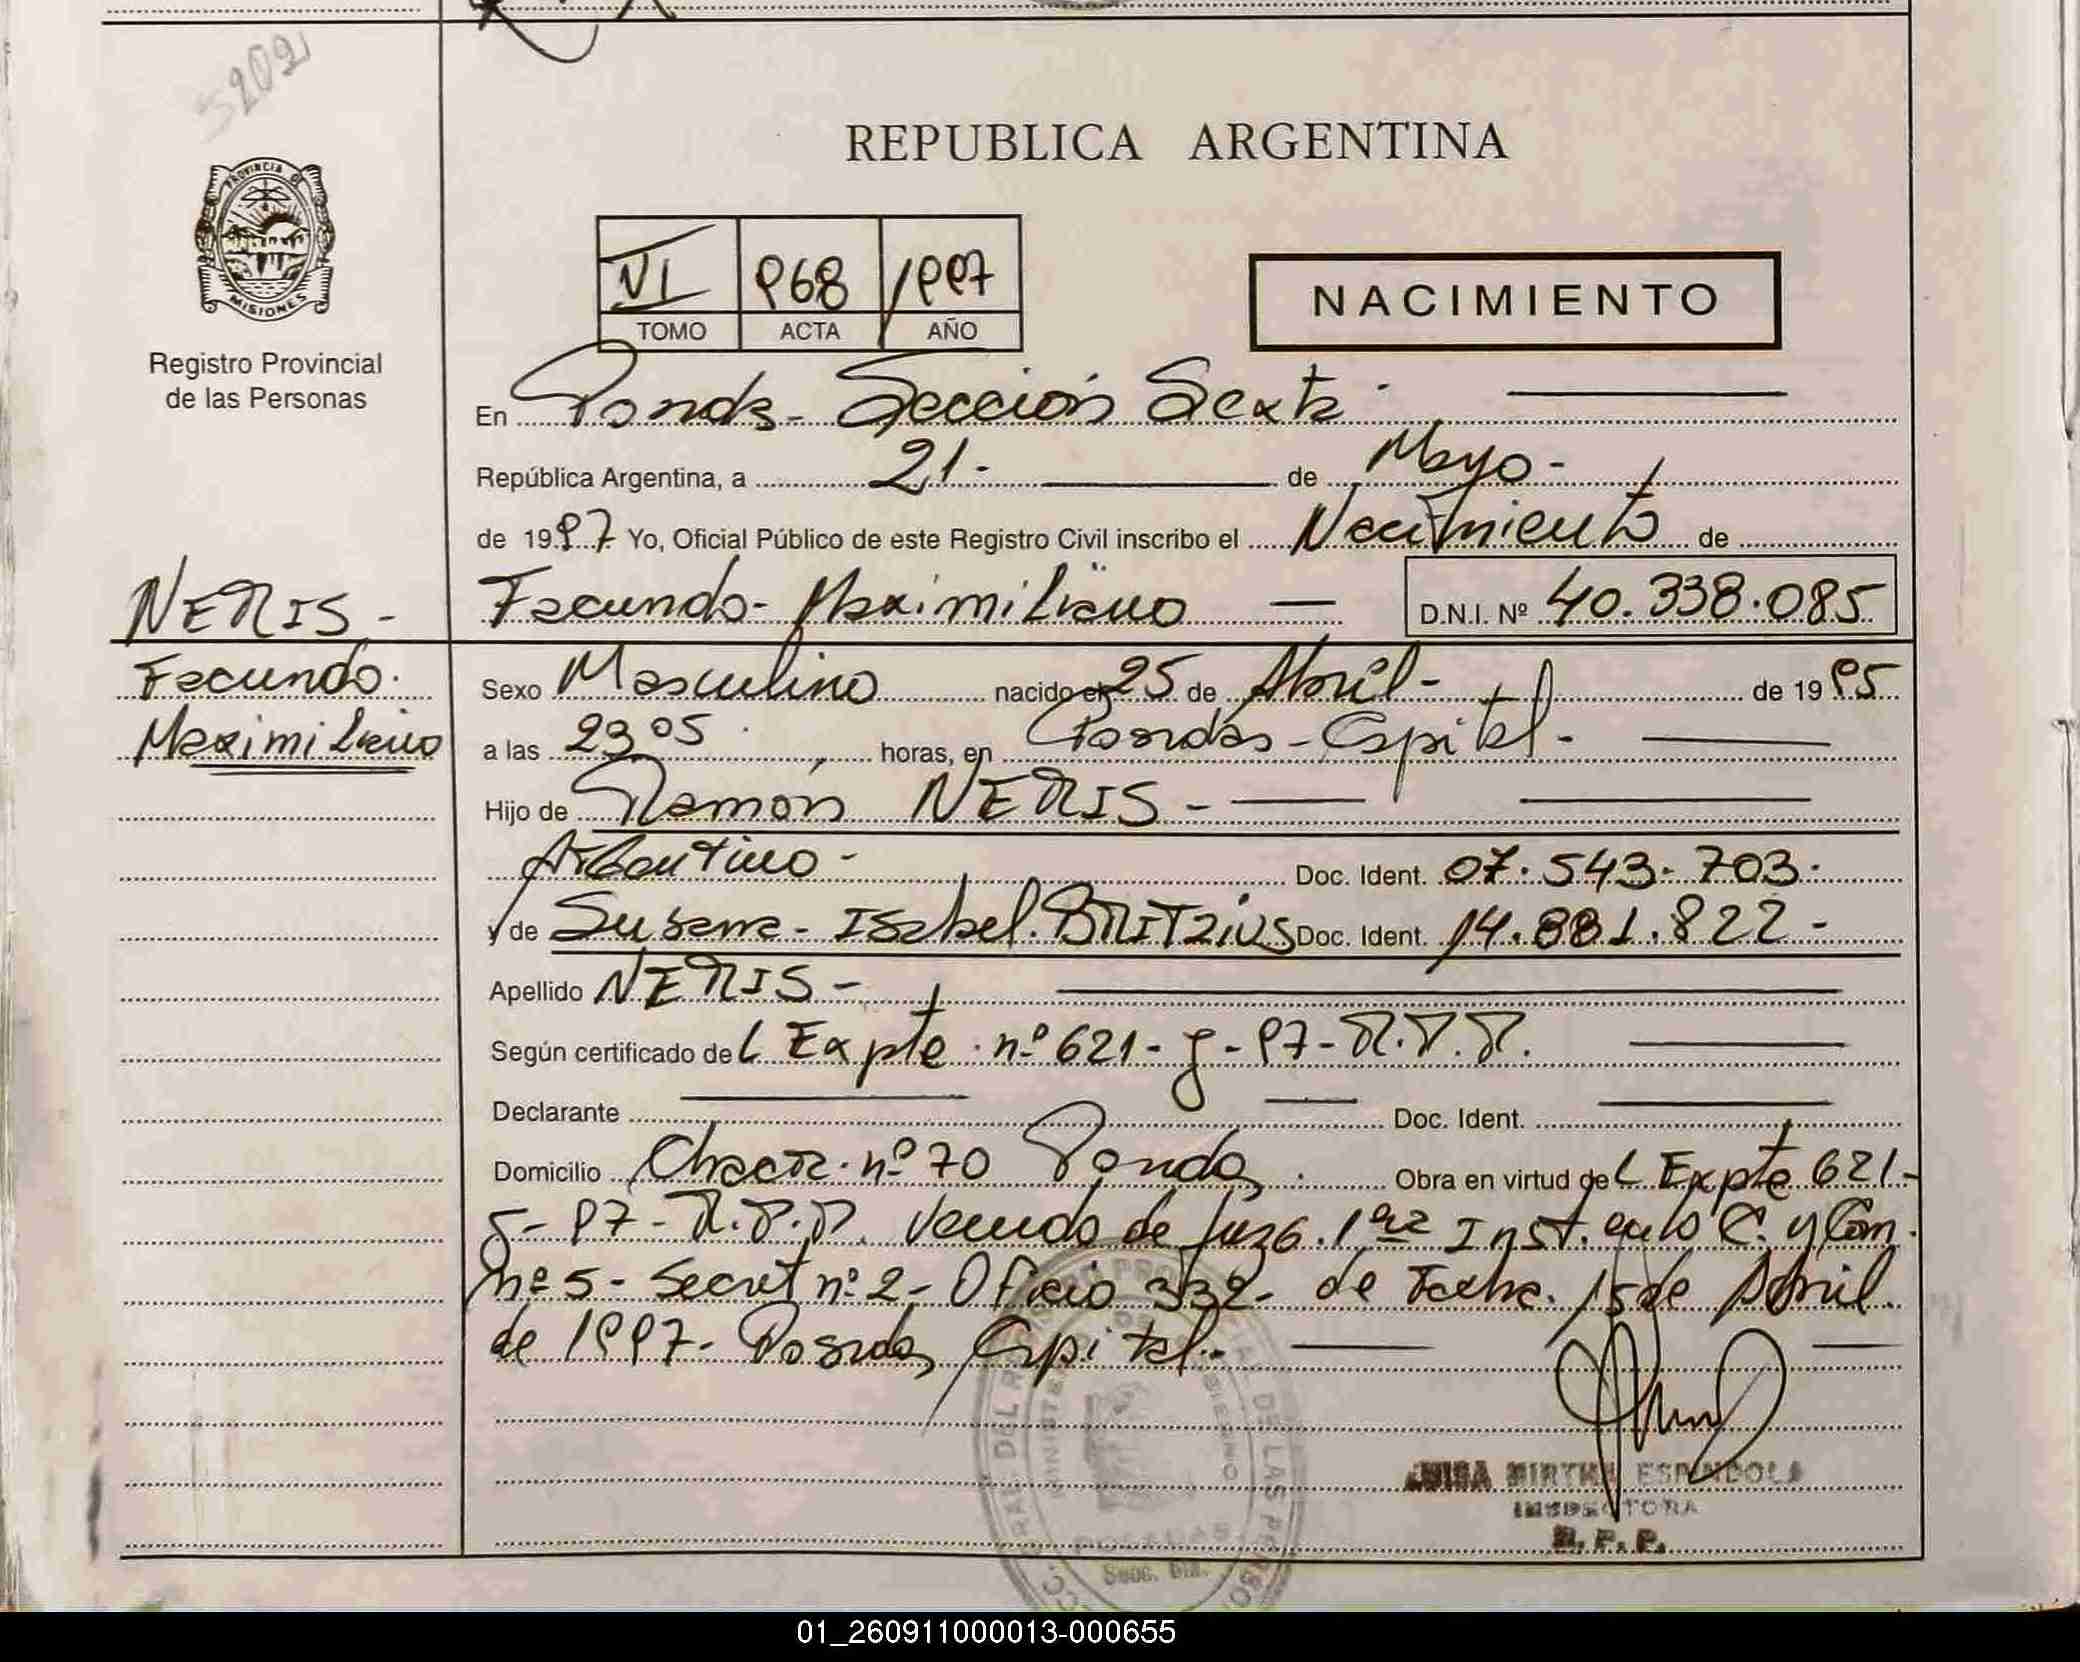 5202
REPUBLICA ARGENTINA
PROVINCIA DE
MISIONES
VI 968 1997
TOMO ACTA AÑO
NACIMIENTO
Registro Provincial
de las Personas
En Posadas - Sección Sexta -
República Argentina, a 21 - de Mayo -
de 1997 Yo, Oficial Público de este Registro Civil inscribo el Nacimiento de
NERIS - Facundo - Maximiliano — D.N.I. Nº 40.338.085
Facundo. Sexo Masculino nacido el 25 de Abril - de 1995
Maximiliano a las 23 05 horas, en Posadas - Capital -
Hijo de Ramón NERIS -
Argentino - Doc. Ident. 07.543.703.
y de Susana - Isabel. BRITZIUS Doc. Ident. 14.881.822 -
Apellido NERIS -
Según certificado del Expte. nº 621 - g - 97 - R.P.P.
Declarante Doc. Ident.
Domicilio Chacra. nº 70 Posadas. Obra en virtud del Expte 621 -
g - 97 - R.P.P. Venido de Juzg. 1era Inst. en lo C. y Com.
nº 5 - Secret nº 2 - Oficio 332 - de Fecha. 15 de Abril
de 1997 - Posadas Capital. -
POSADAS
LUISA MIRTHA ESPINDOLA
INSPECTORA
R. P. P.
01_260911000013-000655